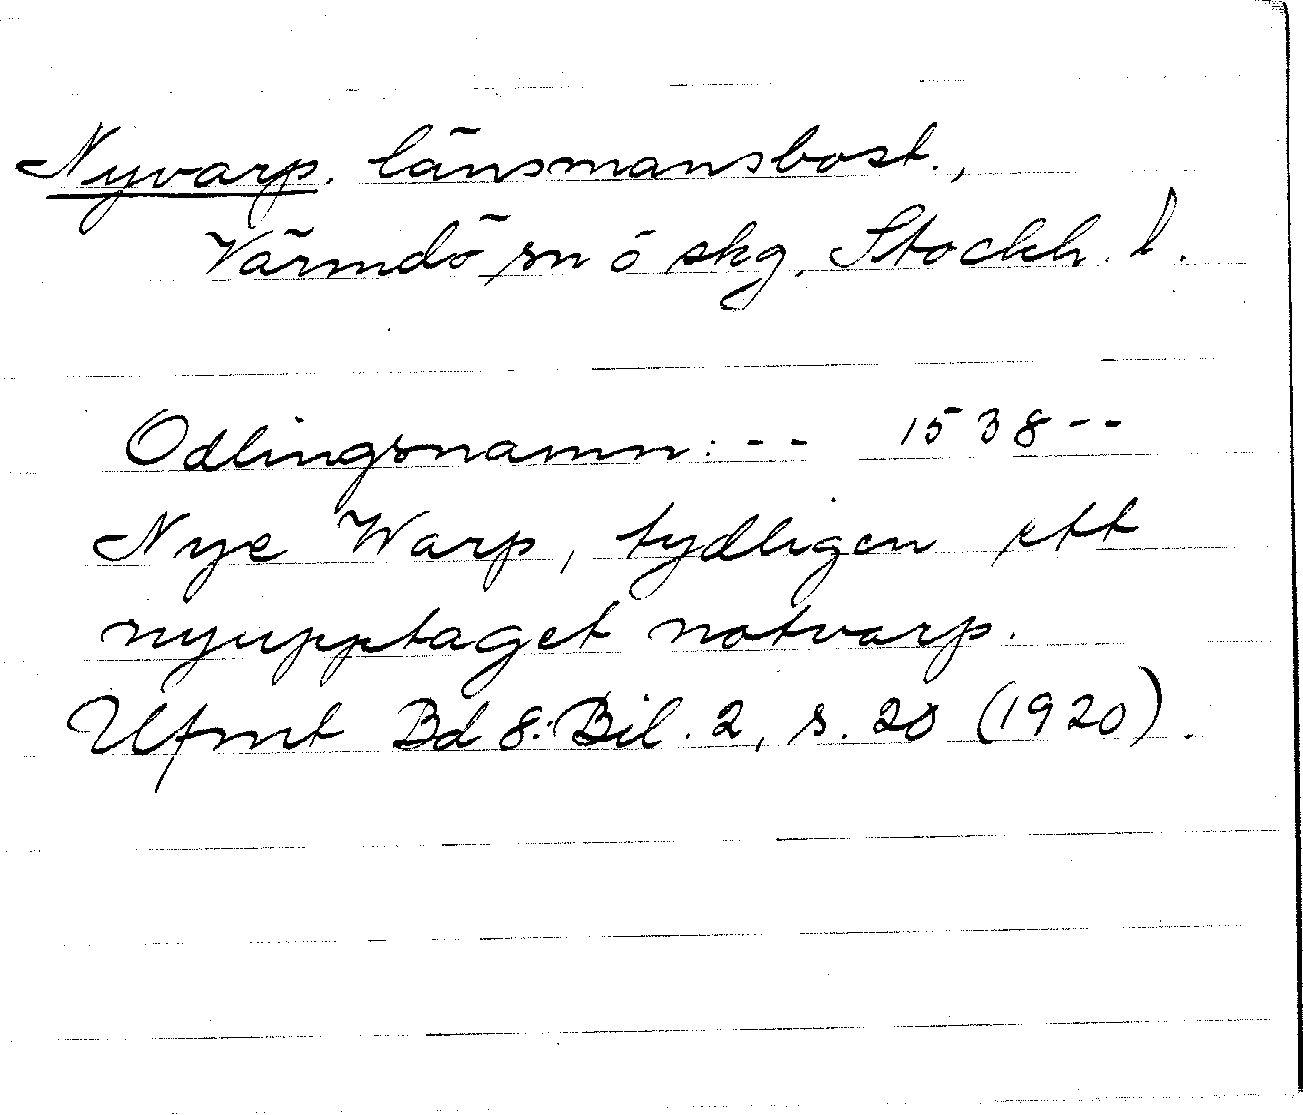 Nyvarp. länsmansbost.,
Värmdö sn o skg. Stockh. l.
Odlingsnamn: -- 1538--
Nye Warp, tydligen ett
nyupptaget notvarp.
Ufmt Bd 8: Bil. 2, s. 20 (1920).